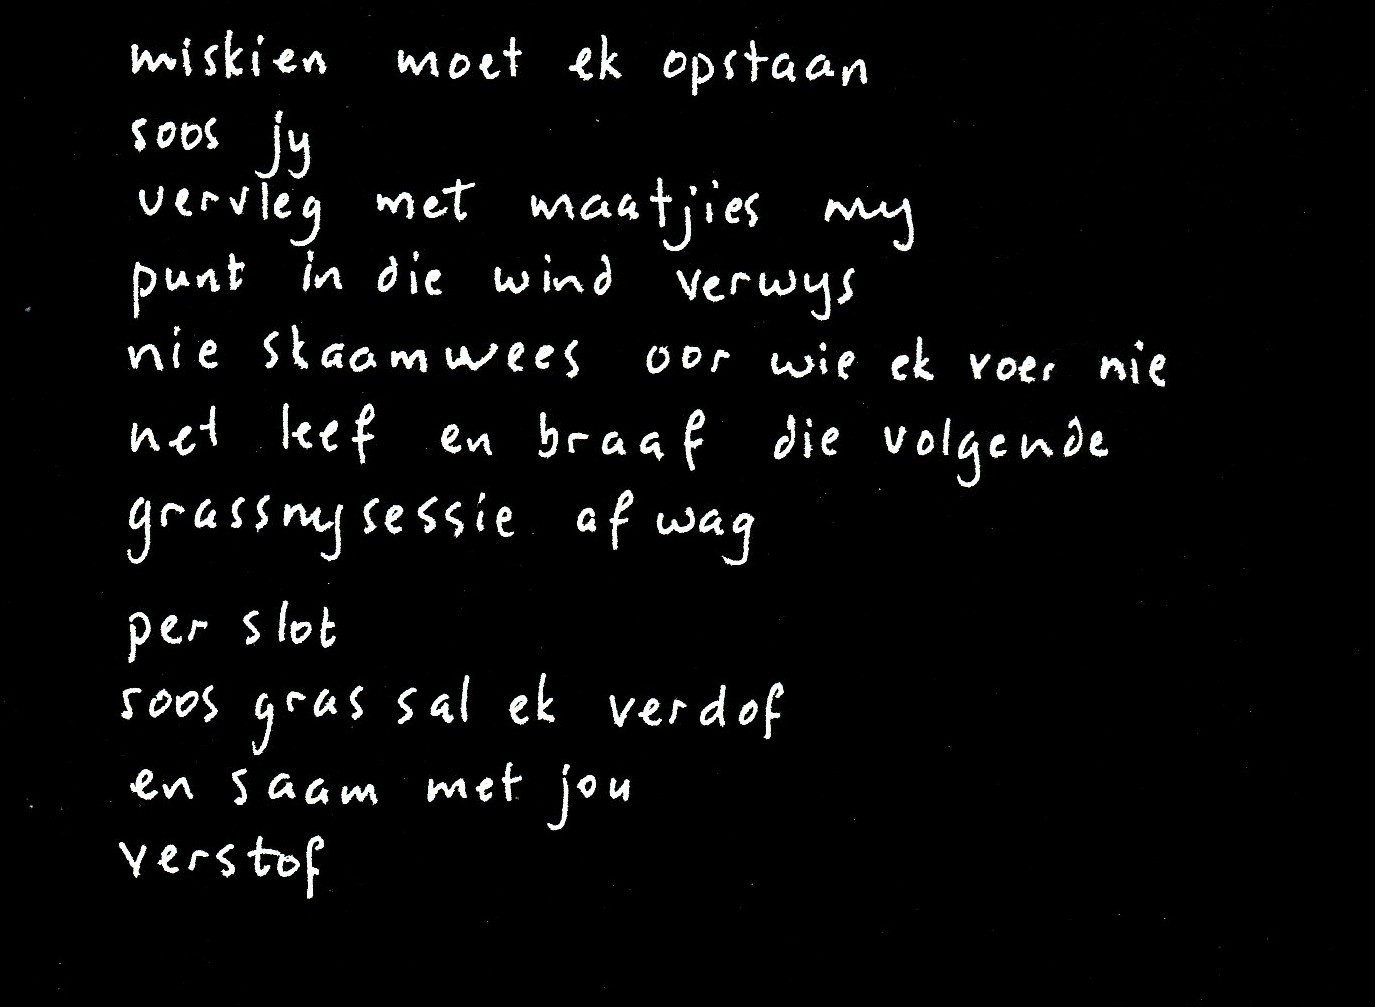 miskien moet ek opstaan
soos jy
vervleg met maatjies my
punt in die wind verwys
nie skaamwees oor wie ek voer nie
net leef en braaf die volgende
grassnysessie afwag
per slot
soos gras sal ek verdof
en saam met jou
verstof